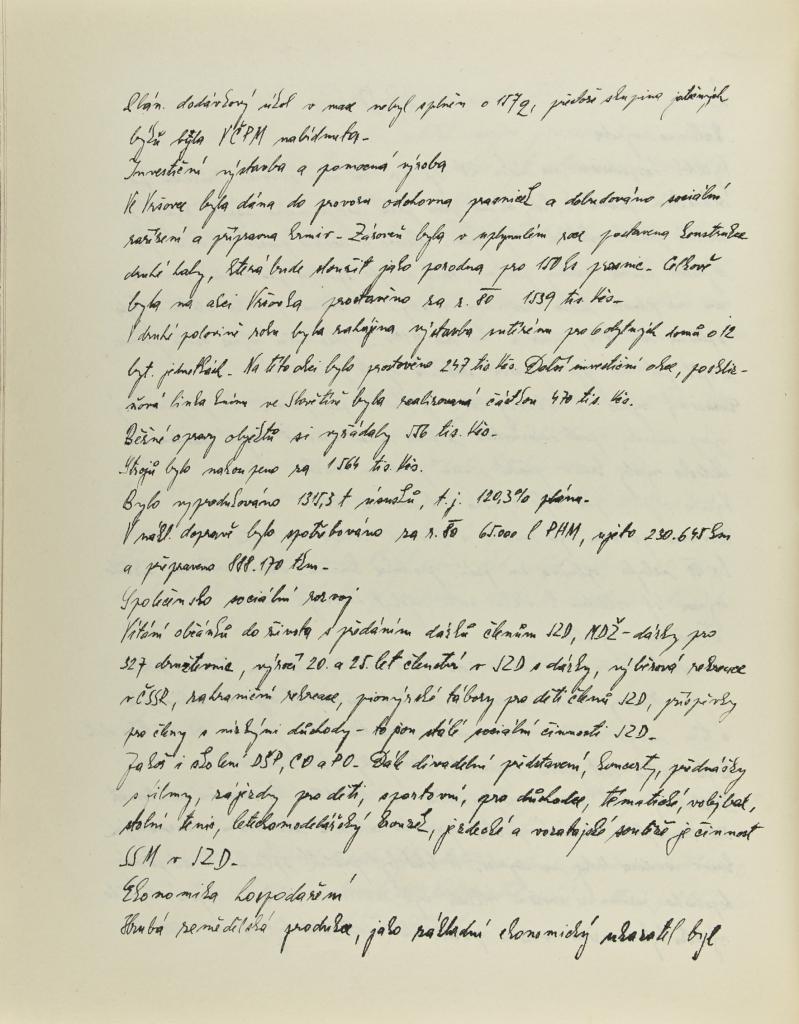 Plán. dodávkový úkol v mase nebyl splněn o 157 q, přestože skupina jatečných
býků byla VČPM nabídnuta.
Investiční výstavba a pomocná výroba
Ve Vršovce byla dána do provozu odchovna prasniček a dobudováno sociální
zařízení a přípravna krmiv. Zároveň byla v uplynulém roce postavena konstrukce
druhé haly, která bude sloužit jako porodna pro 150 ks prasnic. Celkově
bylo na akci Vršovka prostavěno za r. 80 1539 tis. Kčs.
V druhé polovině roku byla zahájena výstavba suterénu pro 6 obytných domů o 12
byt. jednotkách. Na této akci bylo prostavěno 247 tis Kčs. Další investiční akce, poskliz-
ňová linka kmínu ve Slavětíně byla realizovaná částkou 470 tis. Kčs.
Běžné opravy objektů si vyžádaly 556 tis. Kčs.
Strojů bylo nakoupeno za 1564 tis. Kčs.
Bylo vyprodukováno 1315,3 t úsušků, t.j. 120,3% plánu.
V nákl. dopravě bylo spotřebováno za r. 80 65.000 l PHM, ujeto 230.645 km
a přepraveno 888.170 tkm.
Společensko sociální rozvoj
Vítání občánků do života s předáním dárků členům JZD, MDŽ - dárky pro
327 družstevnic, výročí 20. a 25. let členství v JZD s dárky, výběrová rekreace
v ČSSR, zahraniční rekreace, pionýrské tábory pro děti členů JZD, příspěvky
pro členy s nízkými důchody - to jsou stálé sociální činnosti JZD.
Jakož i školení DŠP, CO a PO. Dále divadelní představení, koncerty, přednášky
s filmy, zájezdy pro děti, sportovní, pro důchodce, tématické, volejbal,
stolní tenis, leteckomodelářský kroužek, jezdecké a vozatajské soutěže je činnost
SSM v JZD.
Ekonomika hospodaření
Hrubá zemědělská produkce, jako základní ekonomický ukazatel byl